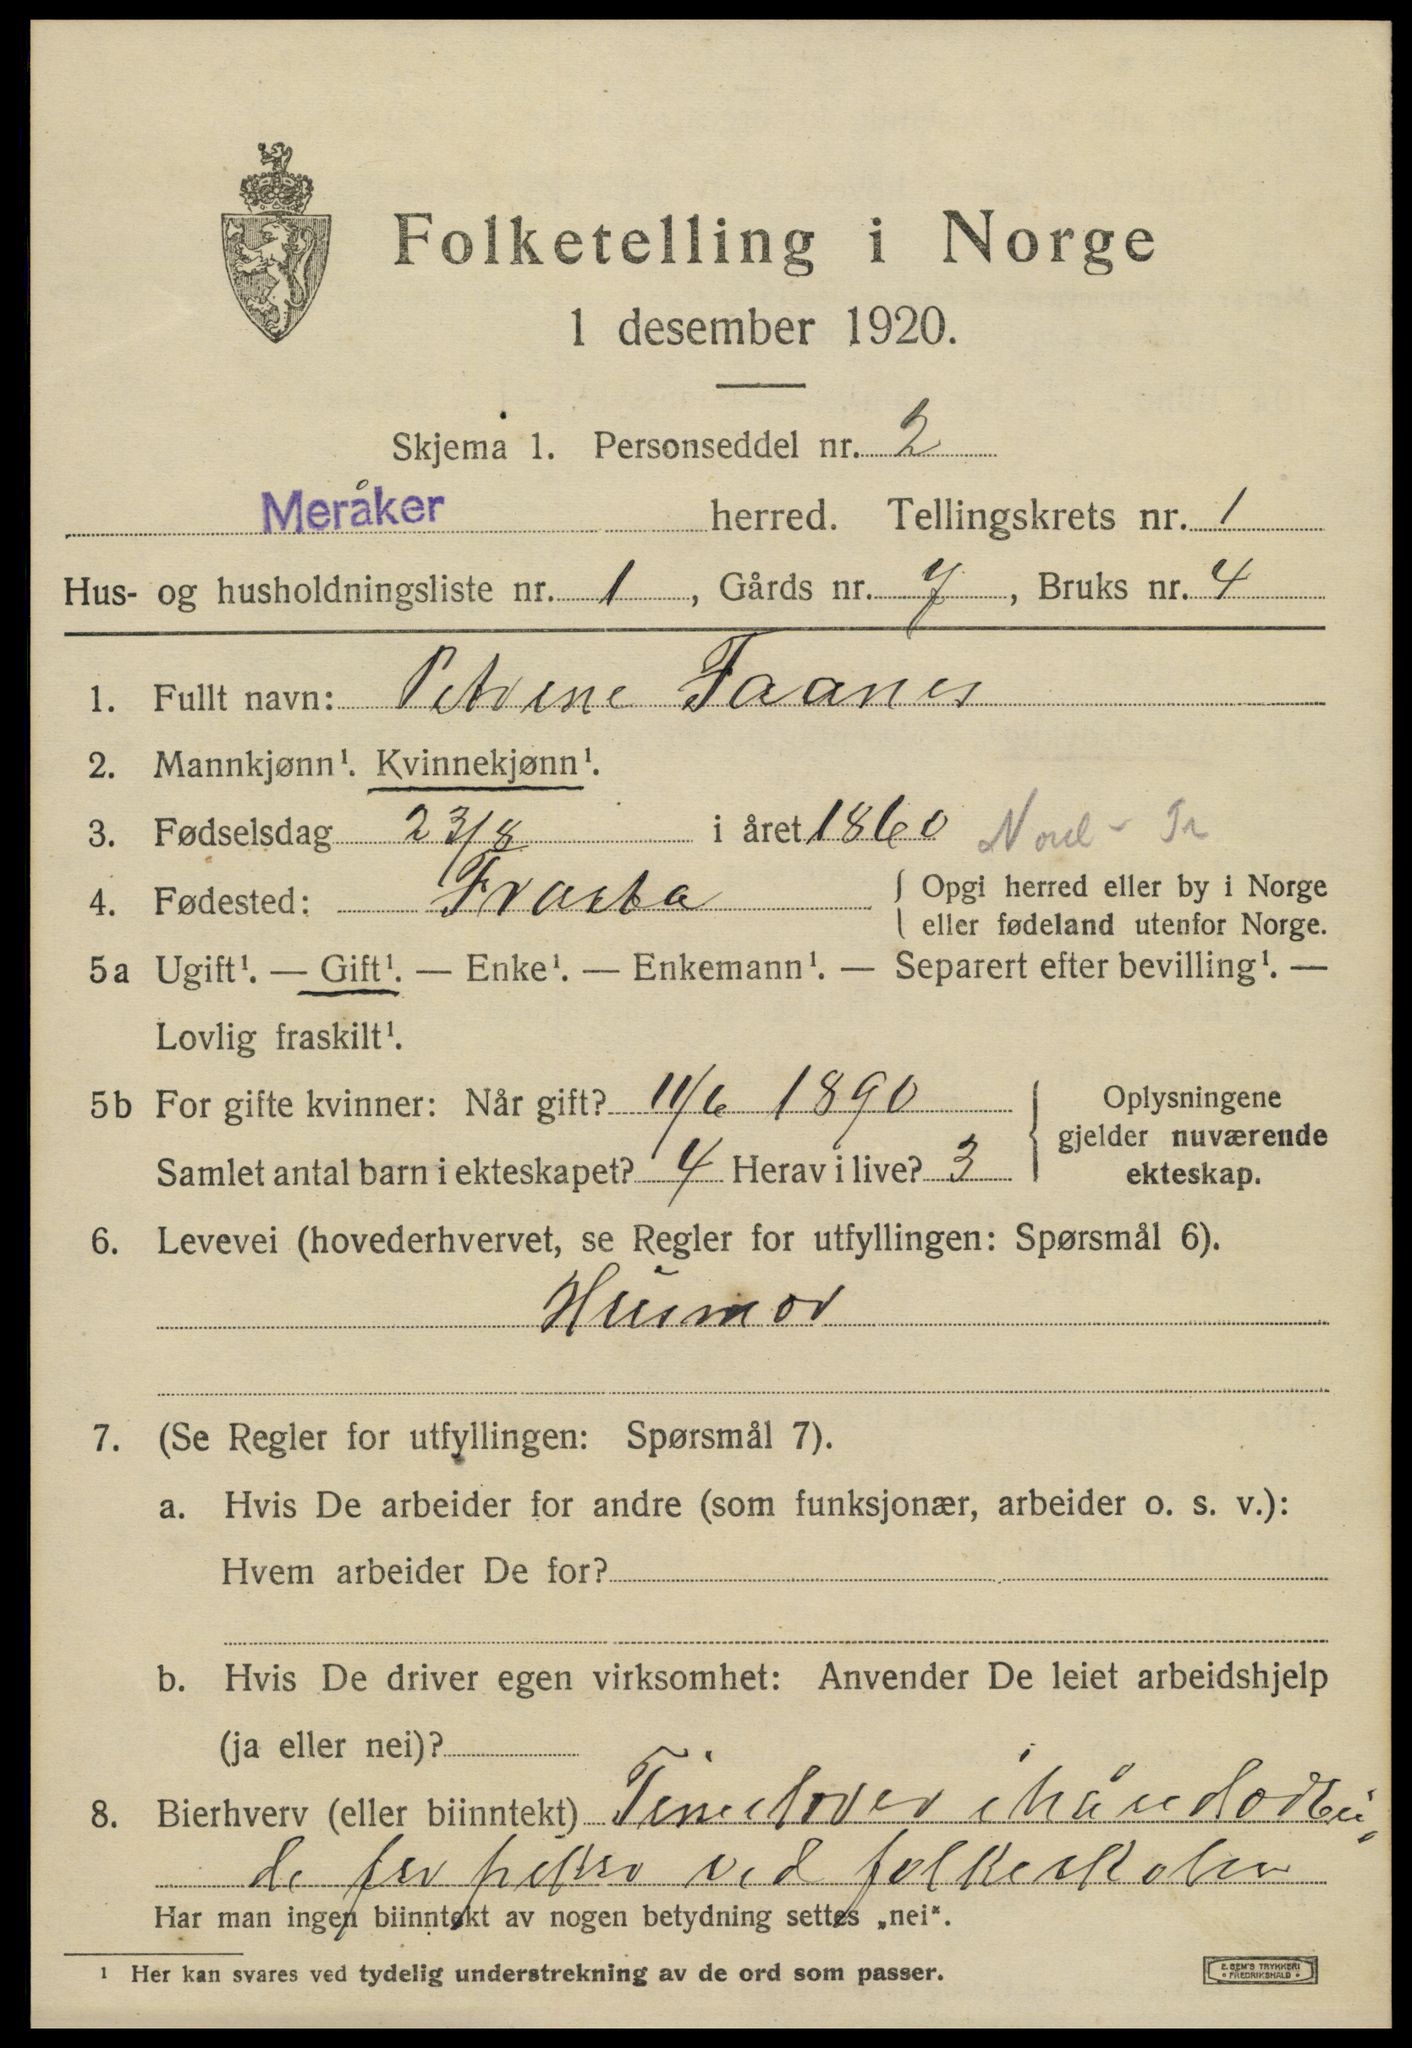 Folketelling i Norge
1 desember 1920.
Skjema 1. Personseddel nr. 2
Meråker herred. Tellingskrets nr. 1
Hus- og husholdningsliste nr. 1, Gårds nr. 7, Bruks nr. 4
1. Fullt navn: Petrine Faanes
2. Mannkjønn¹. Kvinnekjønn¹.
3. Fødselsdag 23/8 i året 1860 Nord-Tr
4. Fødested: Frosta { Opgi herred eller by i Norge
eller fødeland utenfor Norge.
5a Ugift¹. — Gift¹. — Enke¹. — Enkemann¹. — Separert efter bevilling¹. —
Lovlig fraskilt¹.
5b For gifte kvinner: Når gift? 11/6 1890
Samlet antal barn i ekteskapet? 4 Herav i live? 3
Oplysningene
gjelder nuværende
ekteskap.
6. Levevei (hovederhvervet, se Regler for utfyllingen: Spørsmål 6).
Husmor
7. (Se Regler for utfyllingen: Spørsmål 7).
a. Hvis De arbeider for andre (som funksjonær, arbeider o. s. v.):
Hvem arbeider De for?
b. Hvis De driver egen virksomhet: Anvender De leiet arbeidshjelp
(ja eller nei)?
8. Bierhverv (eller biinntekt) i
de for ved folkeskolen
Har man ingen biinntekt av nogen betydning settes „nei“.
¹ Her kan svares ved tydelig understrekning av de ord som passer.
E. SEM'S TRYKKERI
• FREDRIKSHALD •